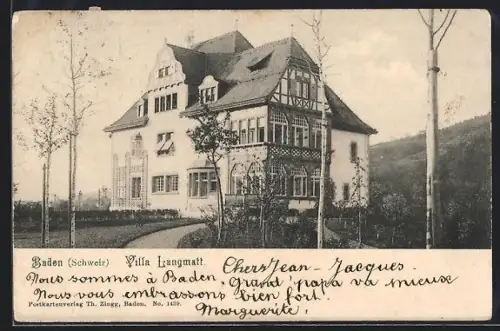 Baden (Schweiz) Villa Langmatt.
Chers Jean-Jacques.
Nous sommes à Baden. Grand'papa va mieux
Nous vous embrassons bien fort.
Marguerite.
Postkartenverlag Th. Zingg, Baden. No. 1439.